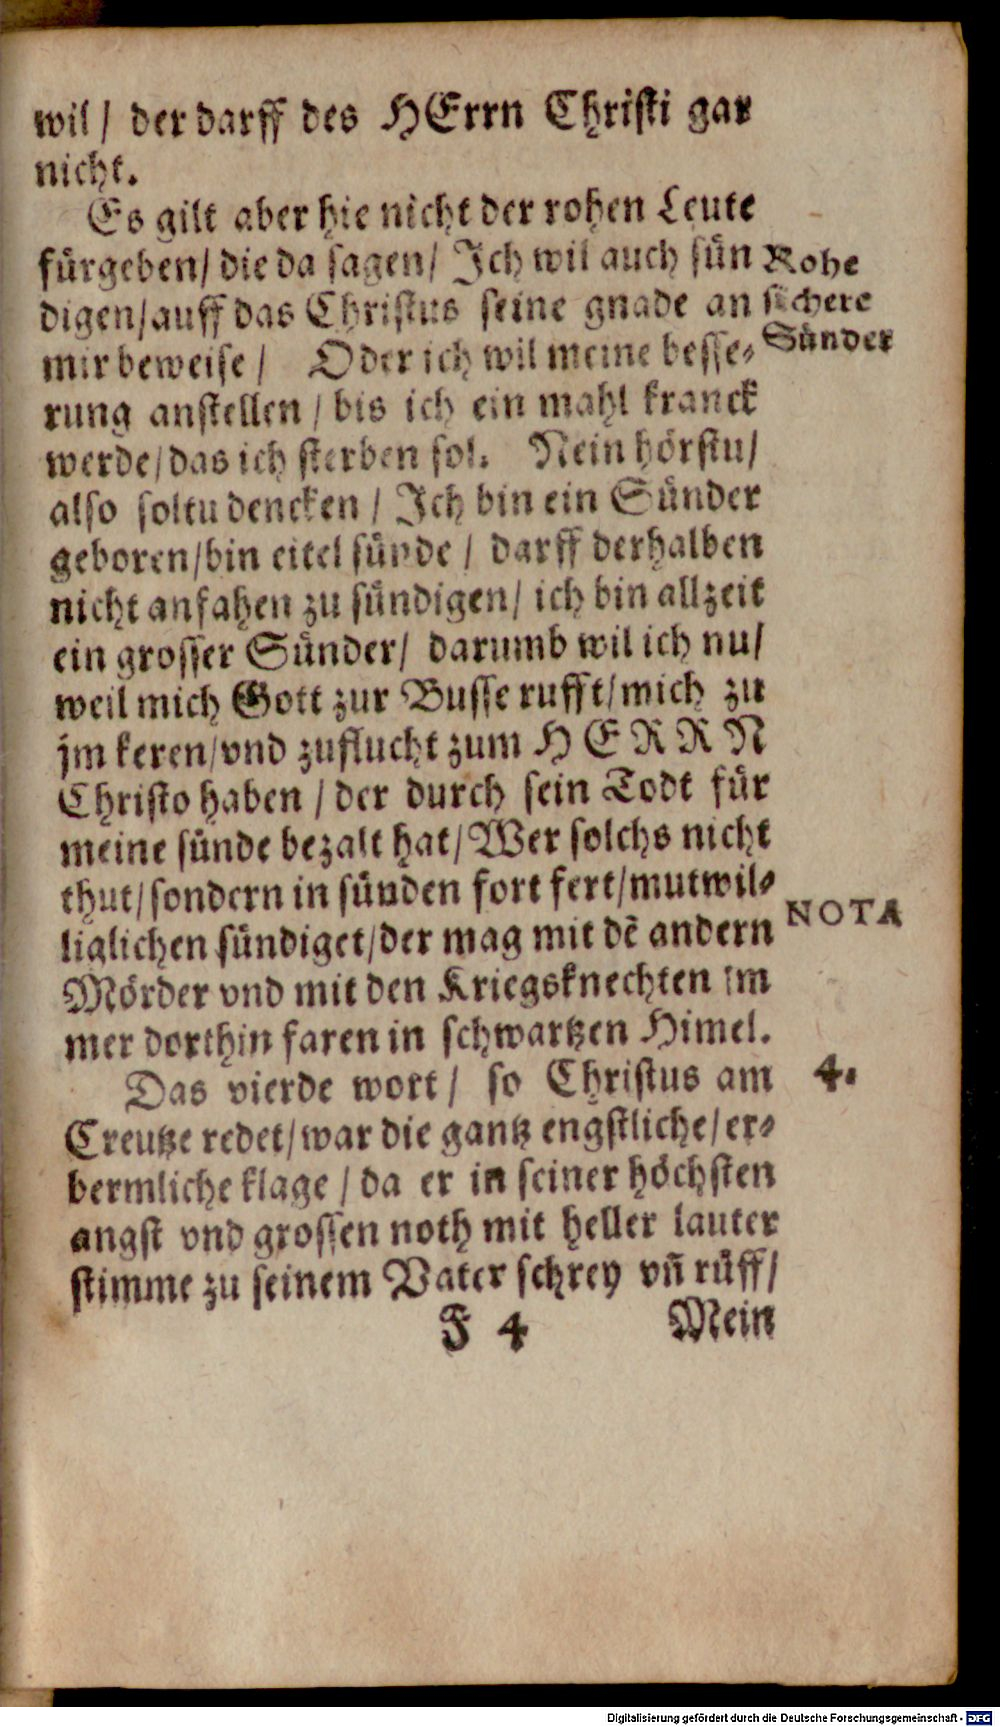 wil / der darff des HErrn Christi gar
nicht.
Es gilt aber hie nicht der rohen Leute
fürgeben / die da sagen / Ich wil auch sün
digen / auff das Christus seine gnade an
mir beweise / Oder ich wil meine besse-
rung anstellen / bis ich ein mahl kranck
werde / das ich sterben sol. Nein hörstu /
also soltu dencken / Ich bin ein Sünder
geboren / bin eitel sünde / darff derhalben
nicht anfahen zu sündigen / ich bin allzeit
ein grosser Sünder / darumb wil ich nu /
weil mich Gott zur Busse rufft / mich zu
jm keren / vnd zuflucht zum HERRN
Christo haben / der durch sein Todt für
meine sünde bezalt hat / Wer solchs nicht
thut / sondern in sünden fort fert / mutwil-
liglichen sündiget / der mag mit dē andern
Mörder vnd mit den Kriegsknechten im
mer dorthin faren in schwartzen Himel.
Das vierde wort / so Christus am
Creutze redet / war die gantz engstliche / er-
bermliche klage / da er in seiner höchsten
angst vnd grossen noth mit heller lauter
stimme zu seinem Vater schrey vñ rüff /
F 4 Mein
Rohe
sichere
Sünder
NOTA
4.
Digitalisierung gefördert durch die Deutsche Forschungsgemeinschaft - DFG